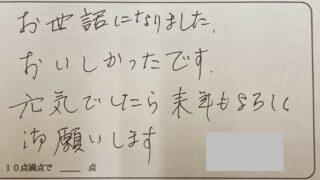 お世話になりました.
おいしかったです.
元気でしたら来年もよろしく
御願いします
10点満点で ____ 点